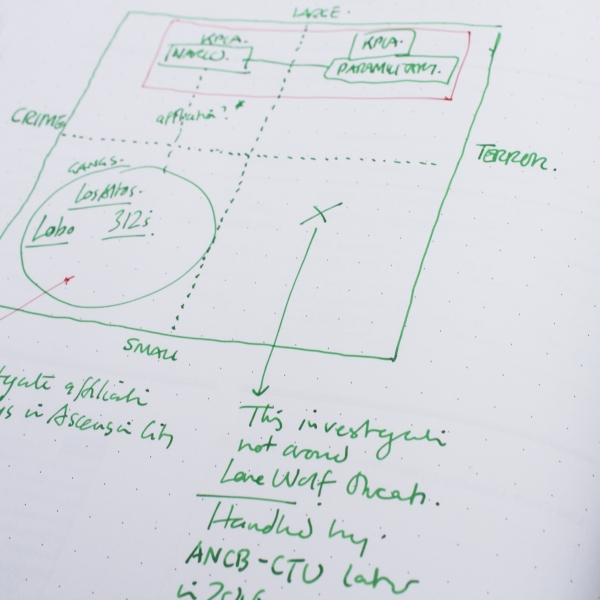 LARGE.
KPLA.
NARCO.
KPLA.
PARAMILITARY.
CRIME
affiliation? *
TERROR.
GANGS.
Los Altos.
Lobo 312s.
SMALL
affiliati
in Ascension City
This investigation
not around
Lone Wolf threats.
Handled by
ANCB-CTU later
in